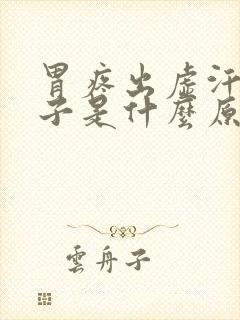 胃疼出虛汗
子是什麼原
雲舟子